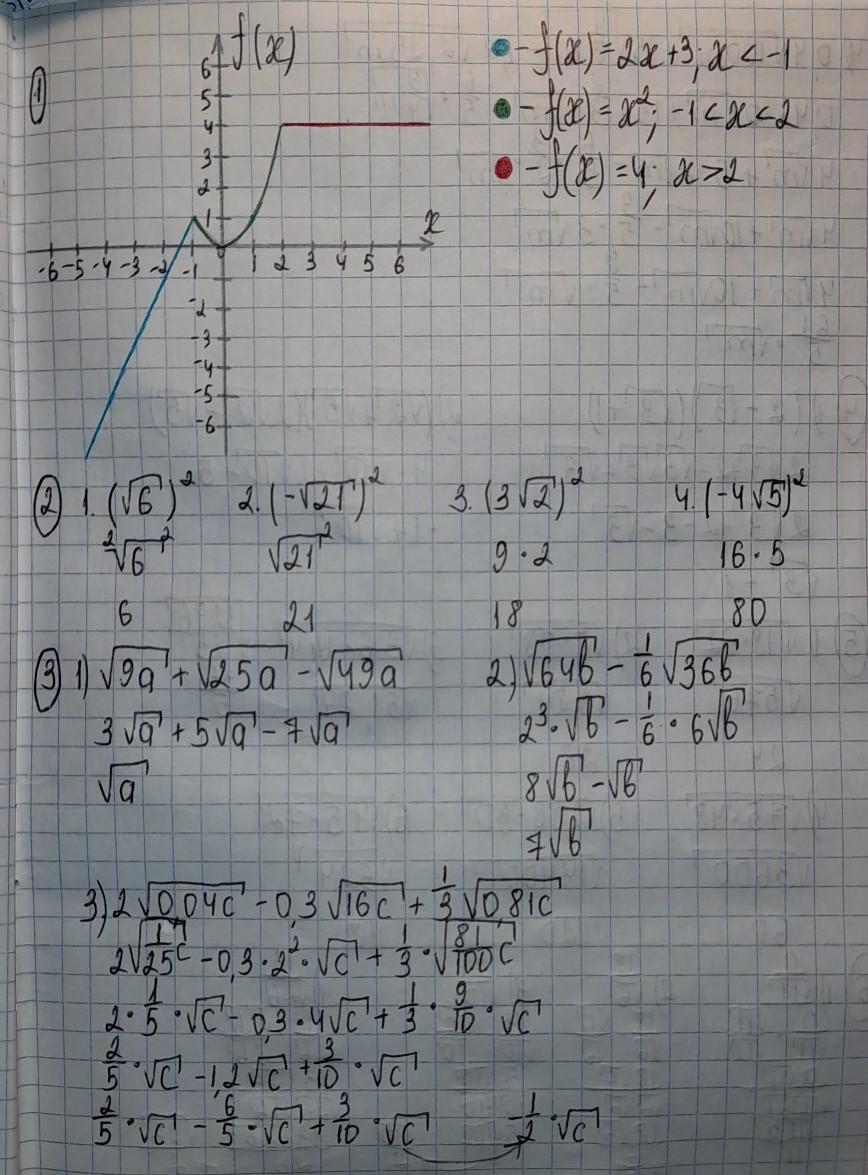 ① f(x)
6
5
4
3
2
1
x
-6 -5 -4 -3 -2 -1 1 2 3 4 5 6
-2
-3
-4
-5
-6
- f(x) = 2x+3; x < -1
- f(x) = x²; -1 < x < 2
- f(x) = 4; x > 2
② 1. (√6)² 2. (-√21)² 3. (3√2)² 4. (-4√5)²
²√6² √21² 9·2 16·5
6 21 18 80
③ 1) √9a + √25a - √49a 2) √64b - 1/6 √36b
3√a + 5√a - 7√a 2³·√b - 1/6 · 6√b
√a 8√b - √b
7√b
3) 2√0,04c - 0,3√16c + 1/3 √0,81c
2√1/25 c - 0,3·2²·√c + 1/3·√81/100 c
2·1/5·√c - 0,3·4√c + 1/3·9/10·√c
2/5·√c - 1,2√c + 3/10·√c
2/5·√c - 6/5·√c + 3/10·√c -1/2·√c